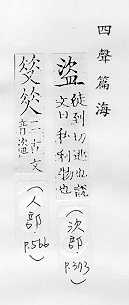 四聲篇海
盜 徒到切逃也說
文曰私利物也
(次部
二古文
音盜
(人部
P.566)